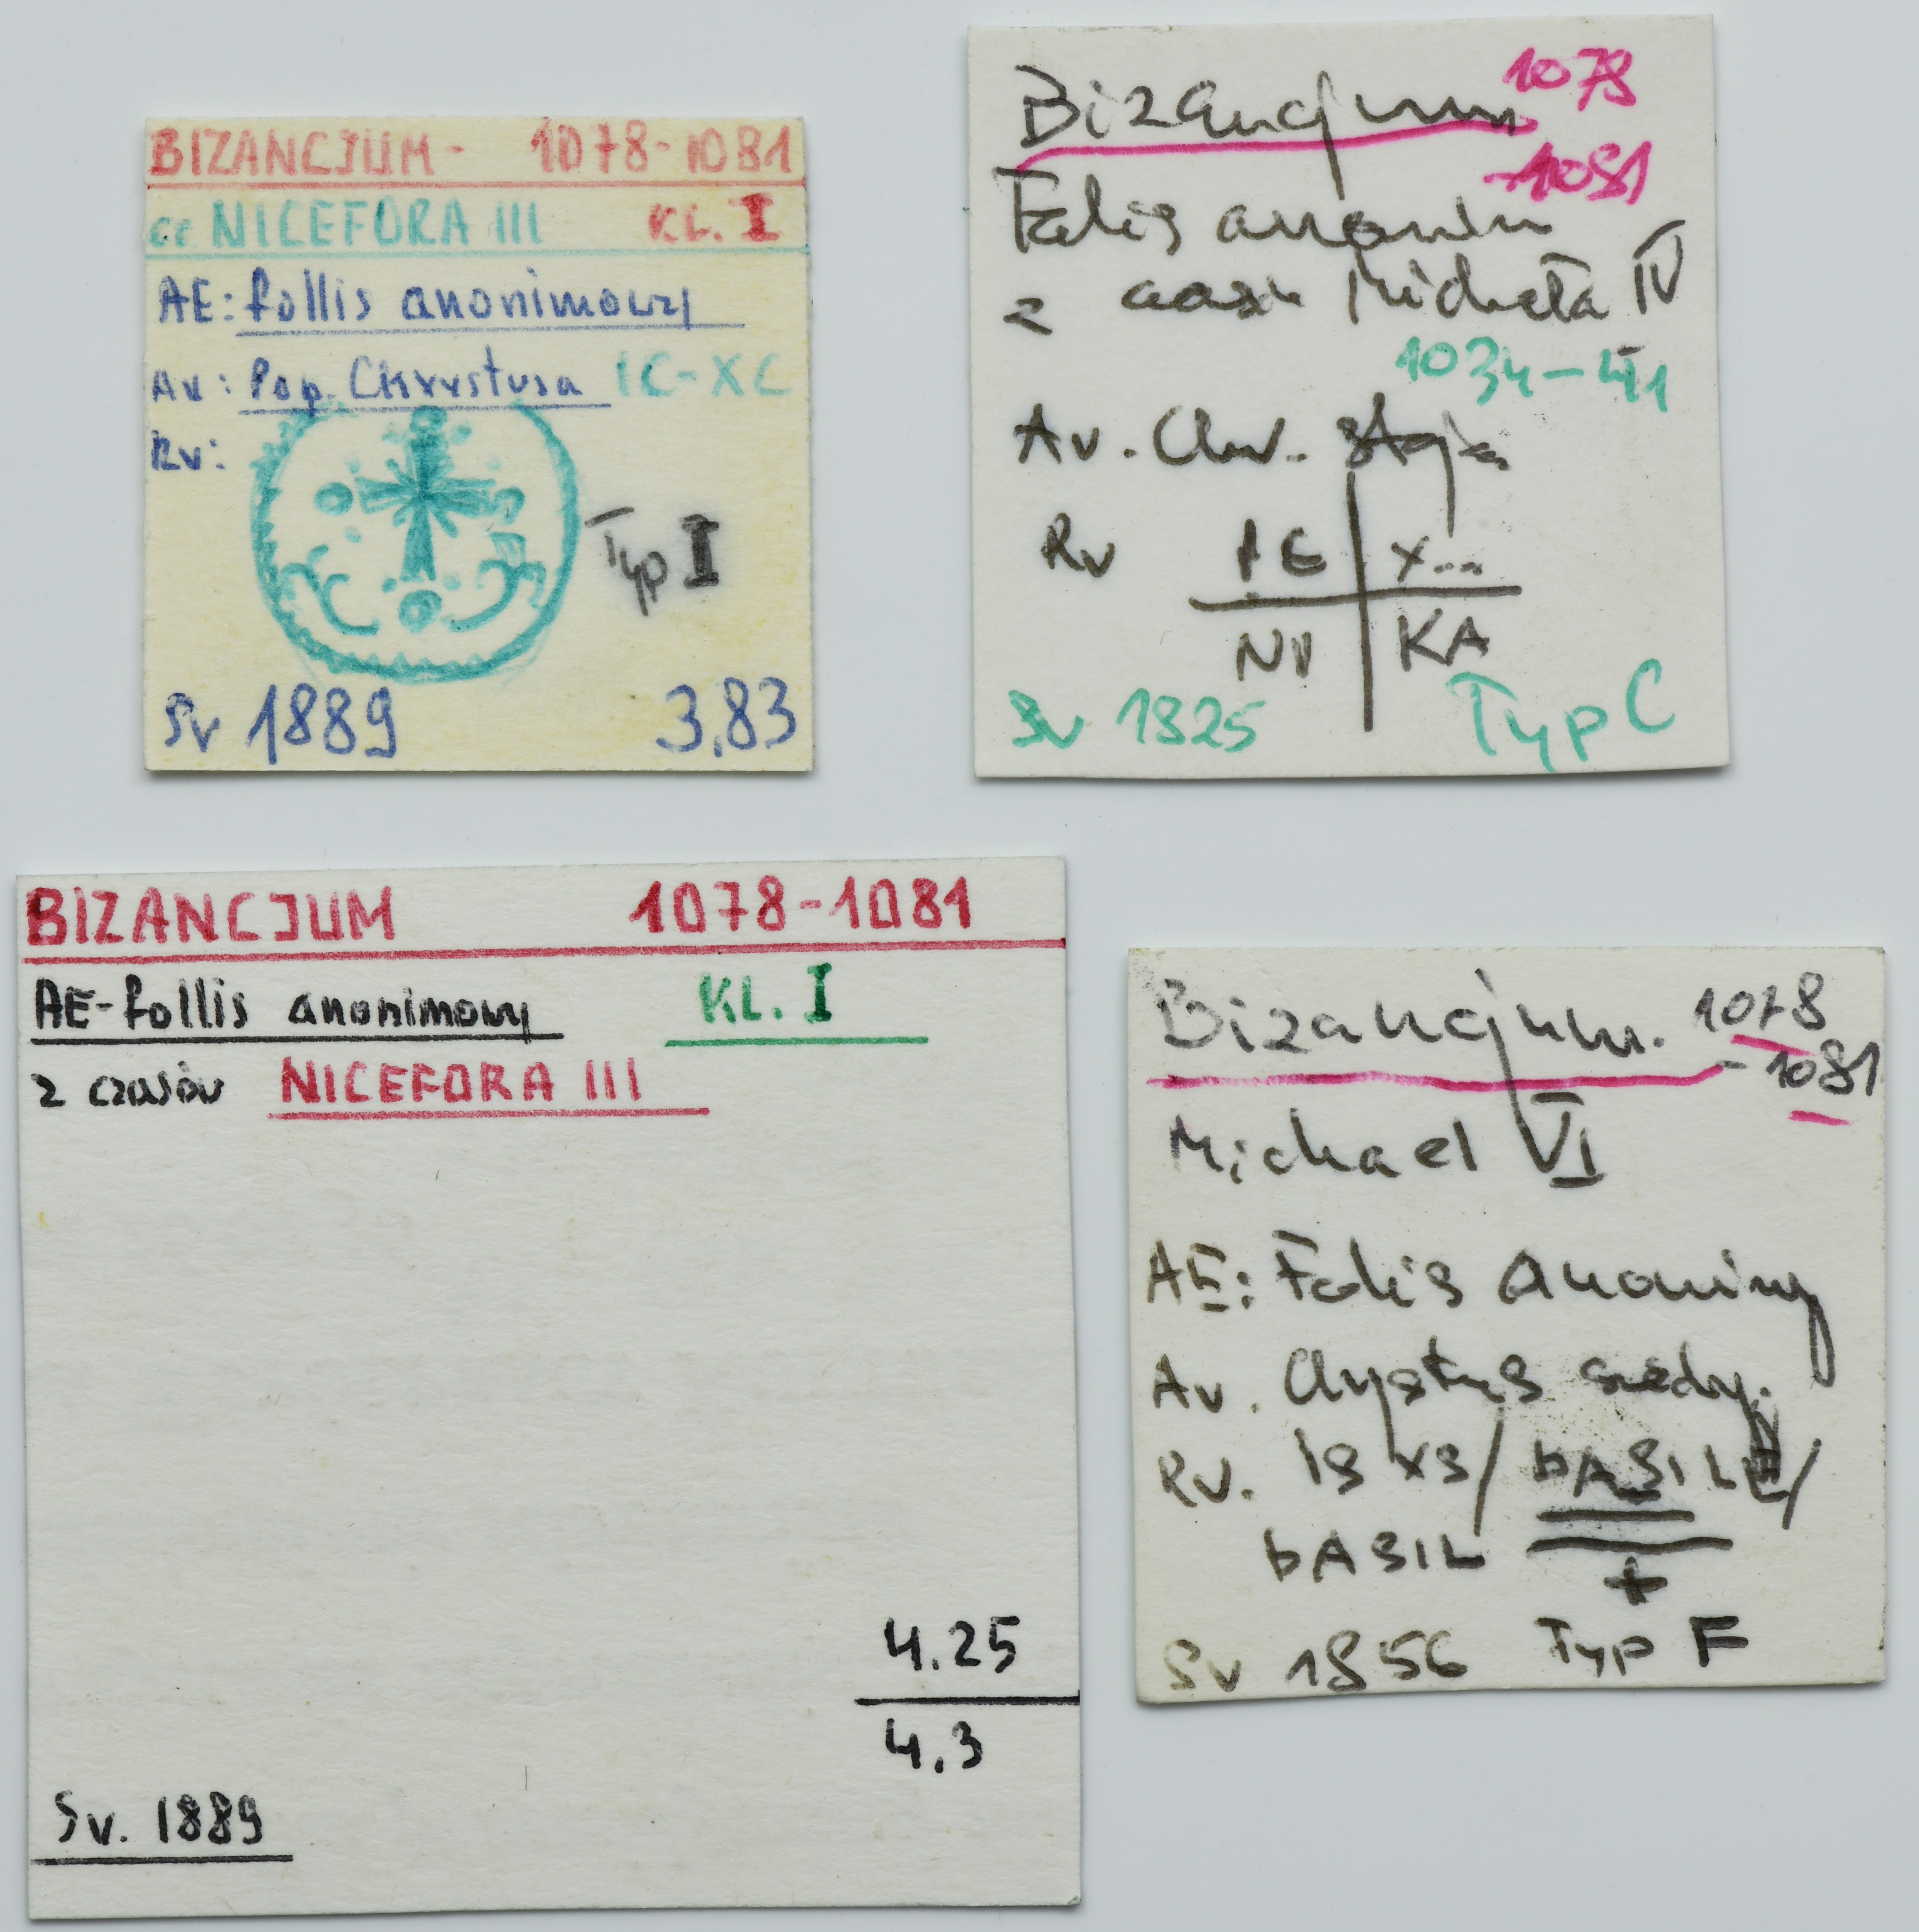 BIZANCJUM - 1078-1081
NICEFORA III KL. I
AE: follis anonimowy
Av: Pop. Chrystusa IC-XC
Rv:
Typ I
Sv 1889 3,83
Bizancjum 1078
-1081
Folis anonim
z czasu Michała IV
1034-41
Av. Chr. stoją
Rv IC X...
NI KA
Sv 1825 Typ C
BIZANCJUM 1078-1081
AE-follis anonimowy KL. I
z czasów NICEFORA III
4.25
4,3
Sv. 1889
Bizancjum. 1078
-1081
Michael VI
AE: Folis anonimy
Av. Chystus siedzy.
Rv. IS XS/ bASILE/
bASIL
+
Sv 1856 Typ F